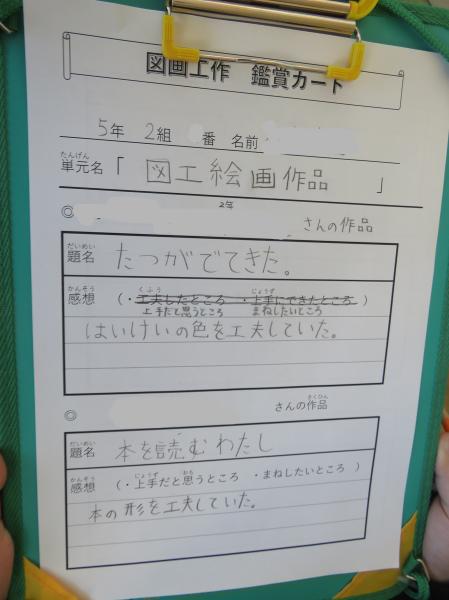 図画工作 鑑賞カード
5年 2組 番 名前
たんげん
単元名「 図工絵画作品 」
2年
◎ さんの作品
だいめい
題名 たつがでてきた。
かんそう くふう じょうず
感想 (・工夫したところ ・上手にできたところ )
上手だと思うところ まねしたいところ
はいけいの色を工夫していた。
さくひん
◎ さんの作品
だいめい
題名 本を読むわたし
かんそう じょうず おも
感想 (・上手だと思うところ ・まねしたいところ )
本の形を工夫していた。